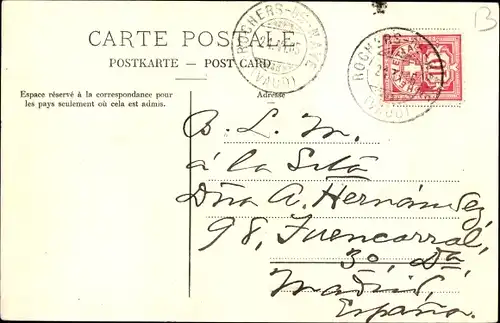 B
CARTE POSTALE
POSTKARTE — POST CARD
ROCHERS-DE-NAYE
(VAUD)
ROCHERS-
(VAUD)
10
Espace réservé à la correspondance pour
les pays seulement où cela est admis.
Adresse
B. L. M.
á la Srta
Dña A. Hernández,
98, Fuencarral,
3º, Da,
Madrid,
España.